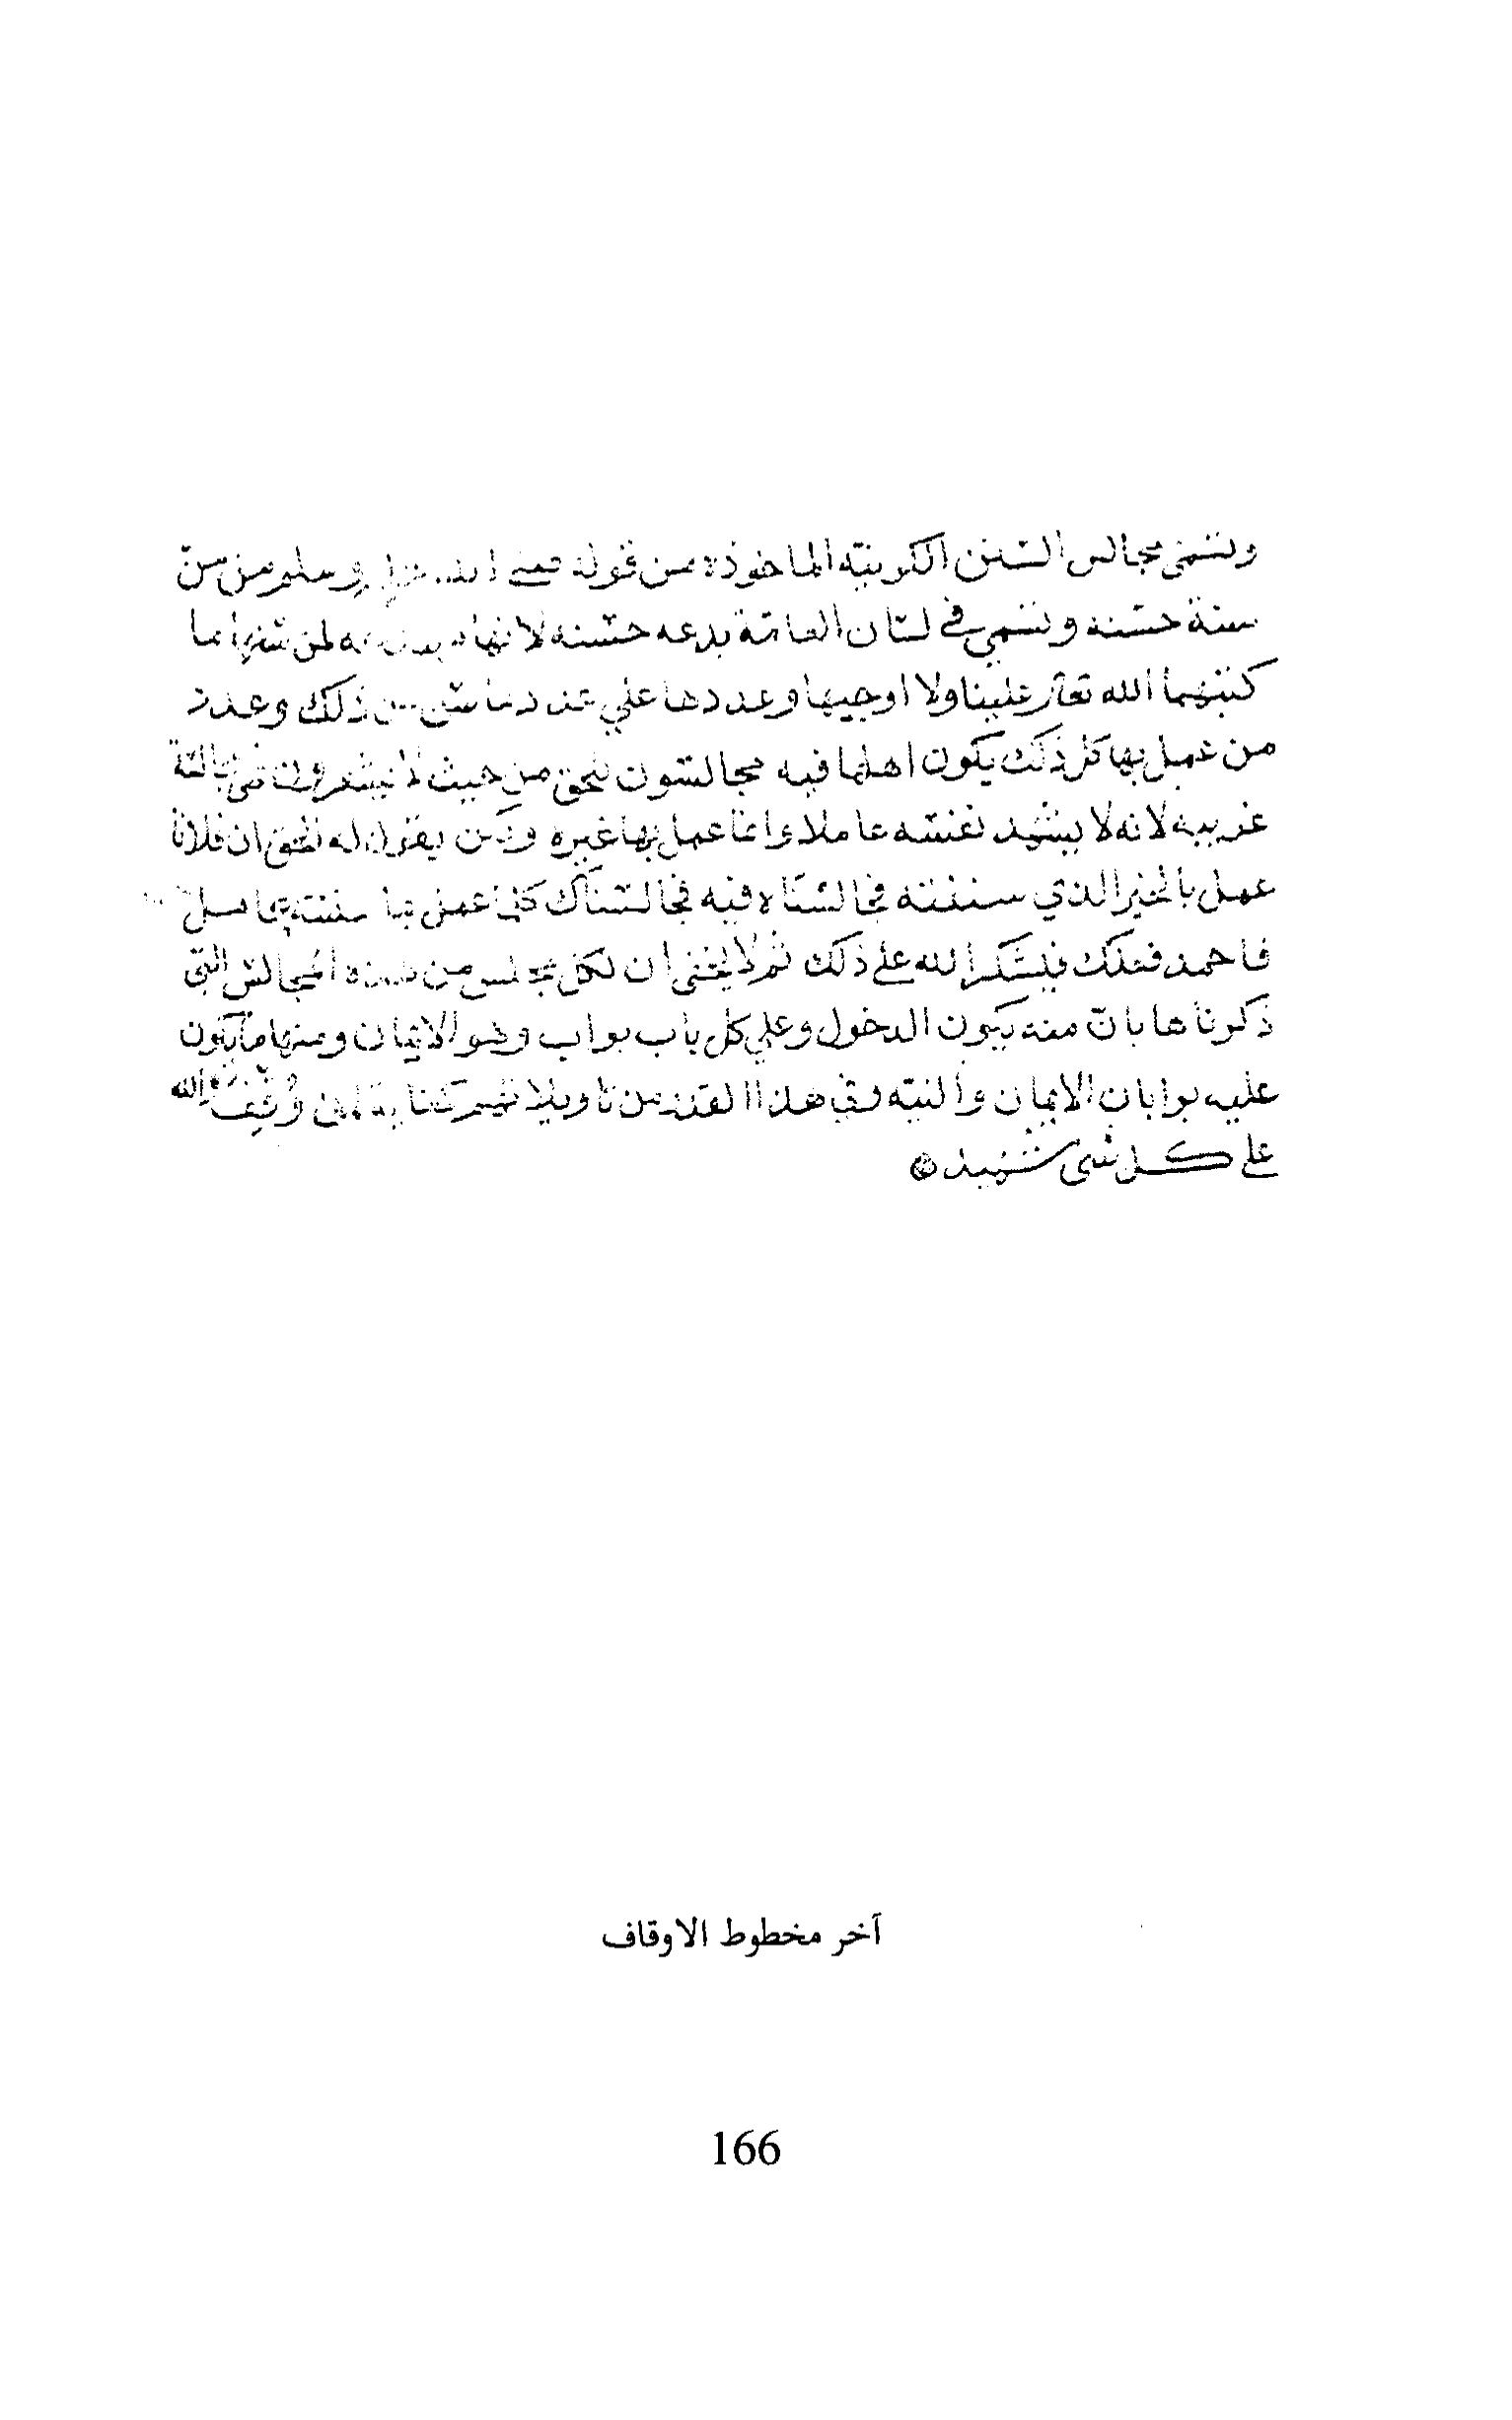 وتسمى مجالس السنن الكونيه الماخوذه من قوله صلى الله عليه وسلم من سن
سنة حسنه وتسمي في لسان العامة بدعه حسنه لانها لمن سنها ما
كتبها الله تعالى علينا ولا اوجبها وعددها علي عدد ما سن من ذلك وعدد
من عمل بها كل ذلك يكون اهلها فيه مجالسون للحق من حيث لا يشعرون
غريبه لانه لا يشهد نفسه عاملا وانما عمل بها غيره ولكن يقول له الحق ان فلانا
عمل بالخير الذي سننته فجالسناه فيه فجالسناك كلما عمل بما سننته
فاحمد فعلك فيشكر الله على ذلك ثم لا يخفى ان لكل مجلس من هذه المجالس التي
ذكرناها باب منه يكون الدخول وعلي كل باب بواب وهو الايمان ومنها ما يكون
عليه بوابان الايمان والنيه وفي هذا القدر من تاويلاتهم كفايه لمن وفق والله
على كل شى شهيد
آخر مخطوط الاوقاف
166